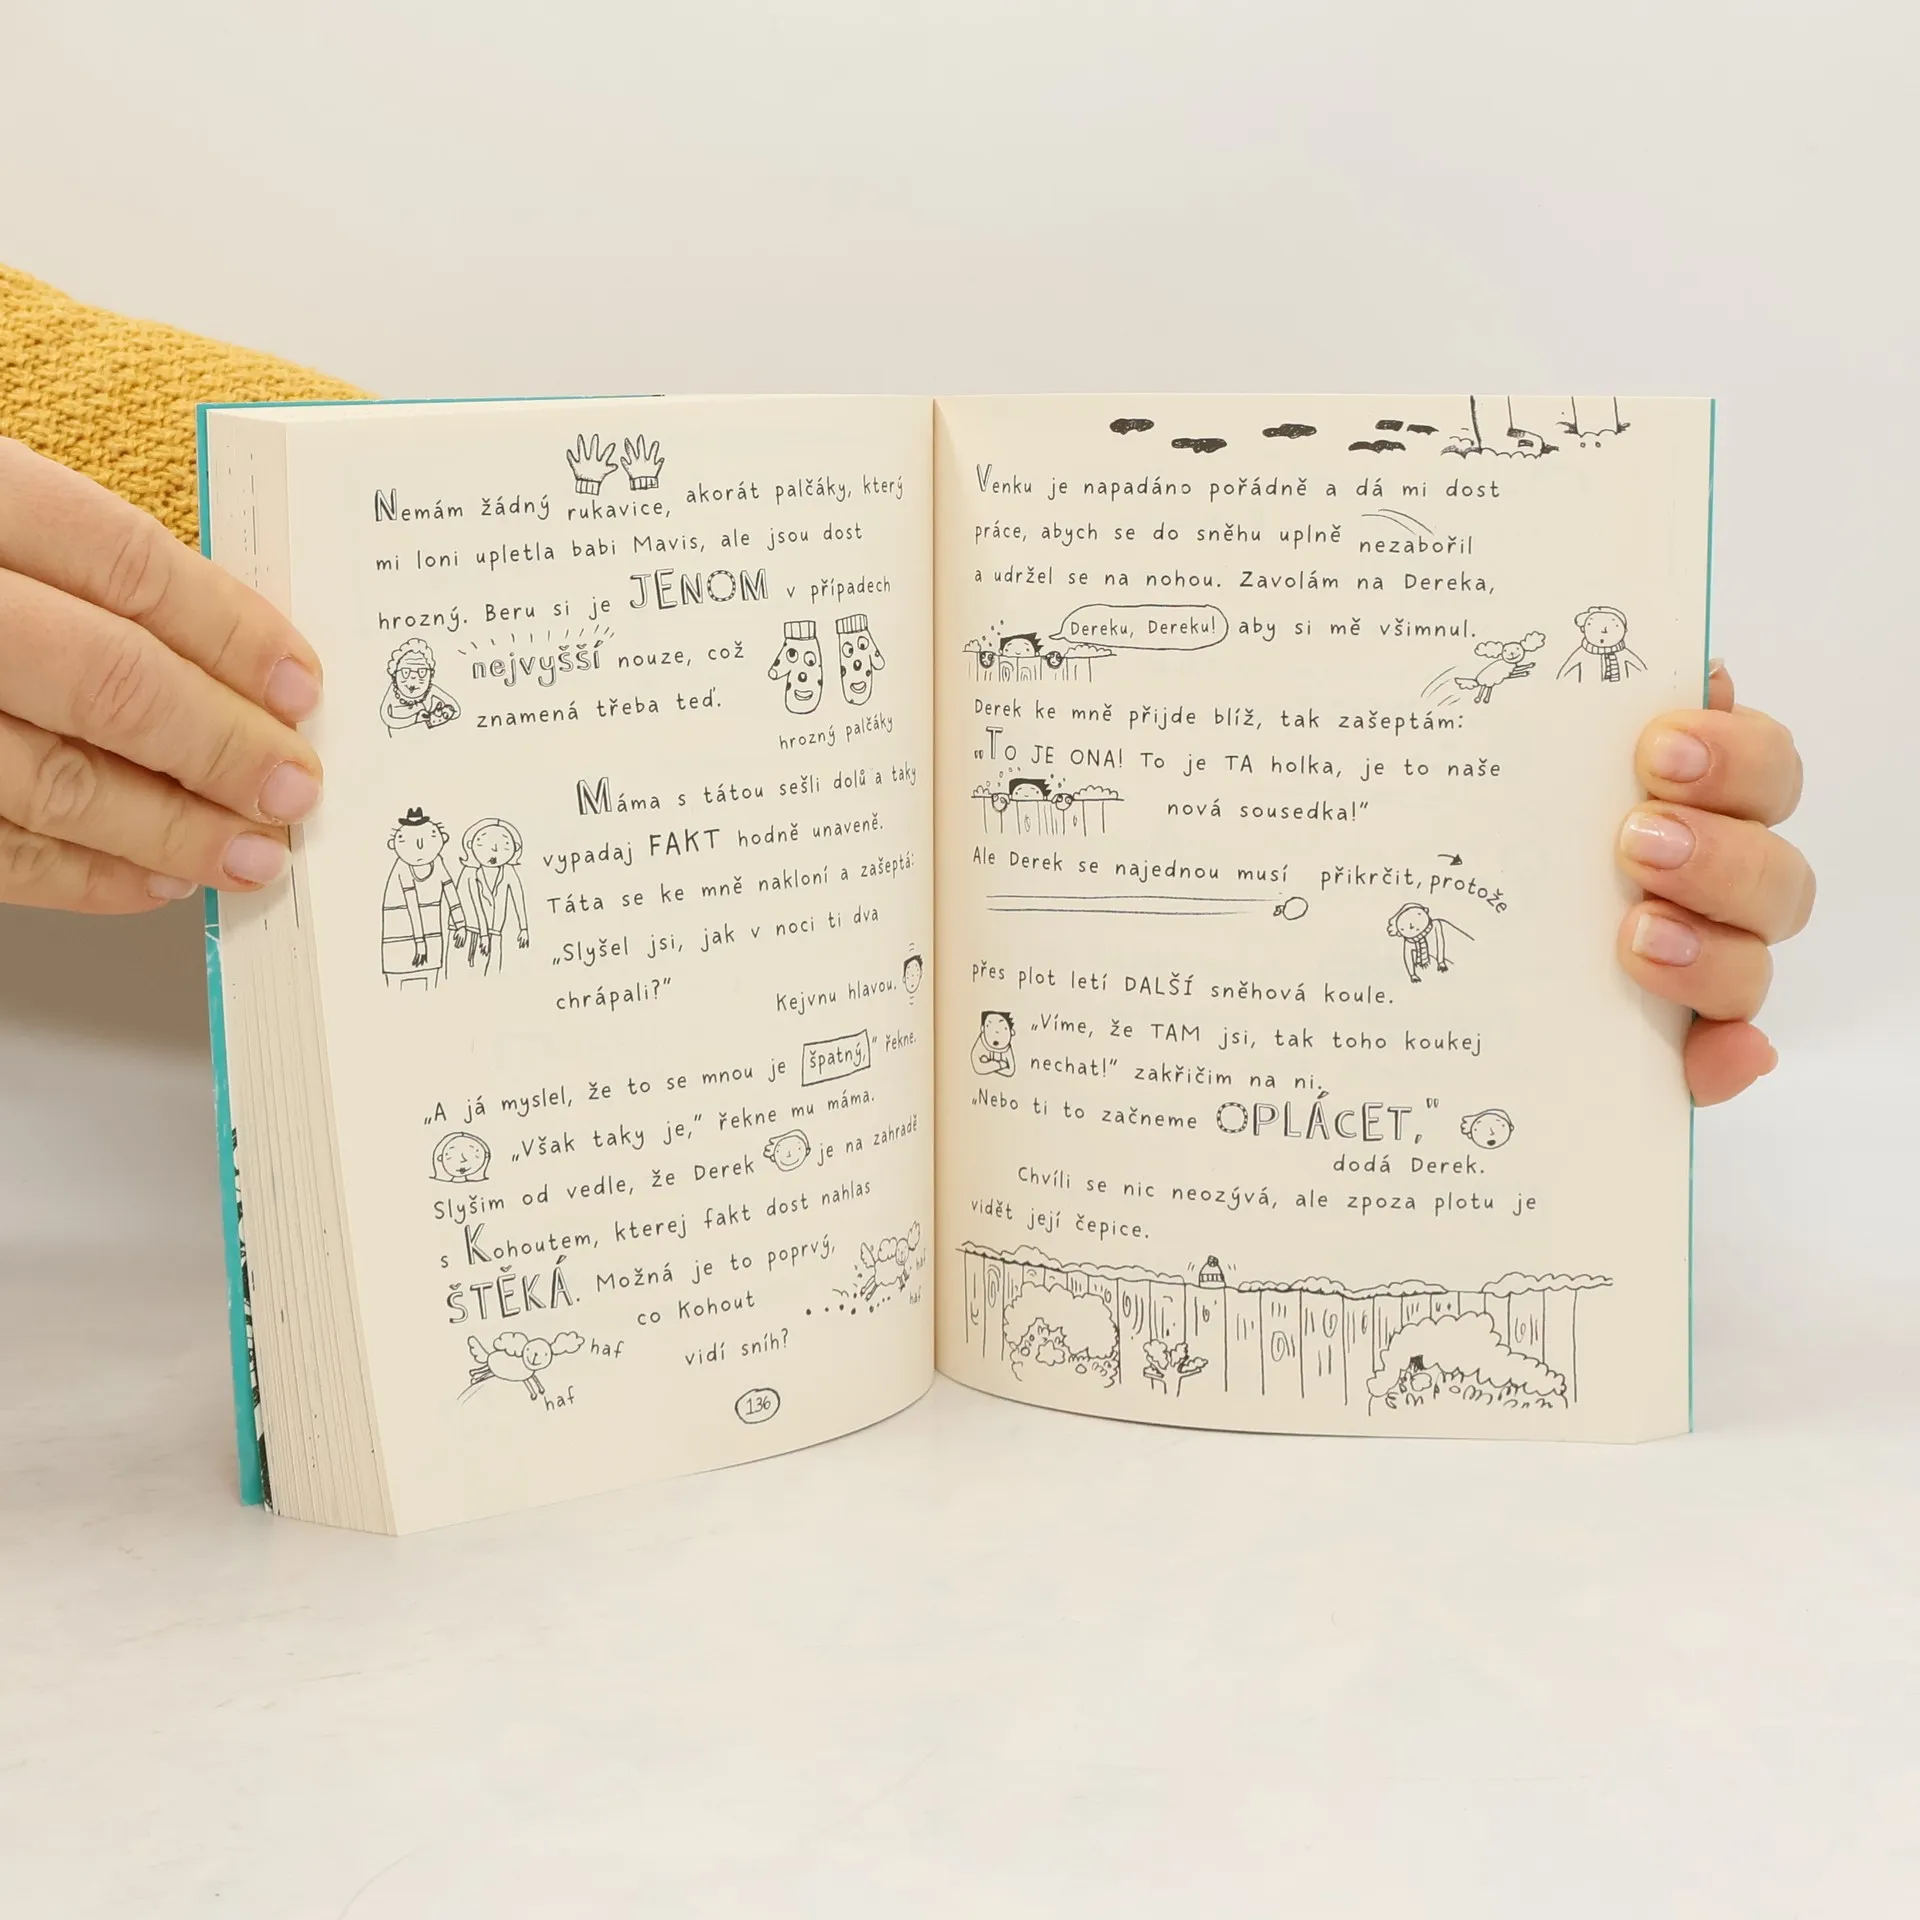 Nemám žádný rukavice, akorát palčáky, který
mi loni upletla babi Mavis, ale jsou dost
hrozný. Beru si je JENOM v případech
nejvyšší nouze, což
znamená třeba teď.
hrozný palčáky
Máma s tátou sešli dolů a taky
vypadaj FAKT hodně unaveně.
Táta se ke mně nakloní a zašeptá:
„Slyšel jsi, jak v noci ti dva
chrápali?“
Kejvnu hlavou.
„A já myslel, že to se mnou je špatný,“ řekne.
„Však taky je,“ řekne mu máma.
Slyšim od vedle, že Derek je na zahradě
s Kohoutem, kterej fakt dost nahlas
ŠTĚKÁ. Možná je to poprvý,
co Kohout
vidí sníh?
haf
haf
haf
haf
136
Venku je napadáno pořádně a dá mi dost
práce, abych se do sněhu uplně nezabořil
a udržel se na nohou. Zavolám na Dereka,
Dereku, Dereku! aby si mě všimnul.
Derek ke mně přijde blíž, tak zašeptám:
„TO JE ONA! To je TA holka, je to naše
nová sousedka!“
Ale Derek se najednou musí přikrčit, protože
přes plot letí DALŠÍ sněhová koule.
„Víme, že TAM jsi, tak toho koukej
nechat!“ zakřičim na ni.
„Nebo ti to začneme OPLÁCET,“
dodá Derek.
Chvíli se nic neozývá, ale zpoza plotu je
vidět její čepice.